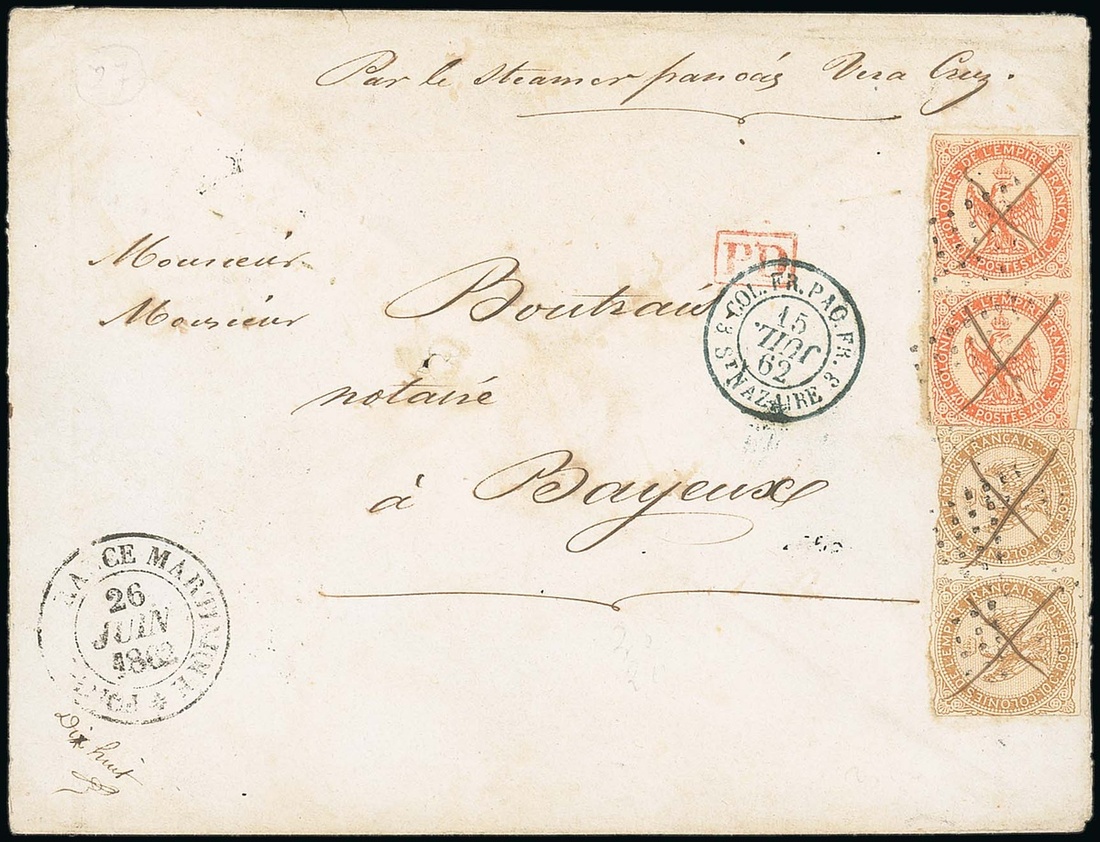 Par le Steamer francais Vera Cruz.
COLONIES DE L'EMPIRE FRANÇAIS
POSTES
40
C
P.D
Monsieur
Monsieur Boutrais
COL. FR. PAQ. FR. 3
15
JUIL.
62
3 ST NAZAIRE
COLONIES DE L'EMPIRE FRANÇAIS
POSTES
40
C
notaire
à Bayeux
EMPIRE FRANÇAIS
POSTES
COLONIES DE L'EMPIRE FRANÇAIS
POSTES
MARTINIQUE
26
JUIN
1862
Dix huit